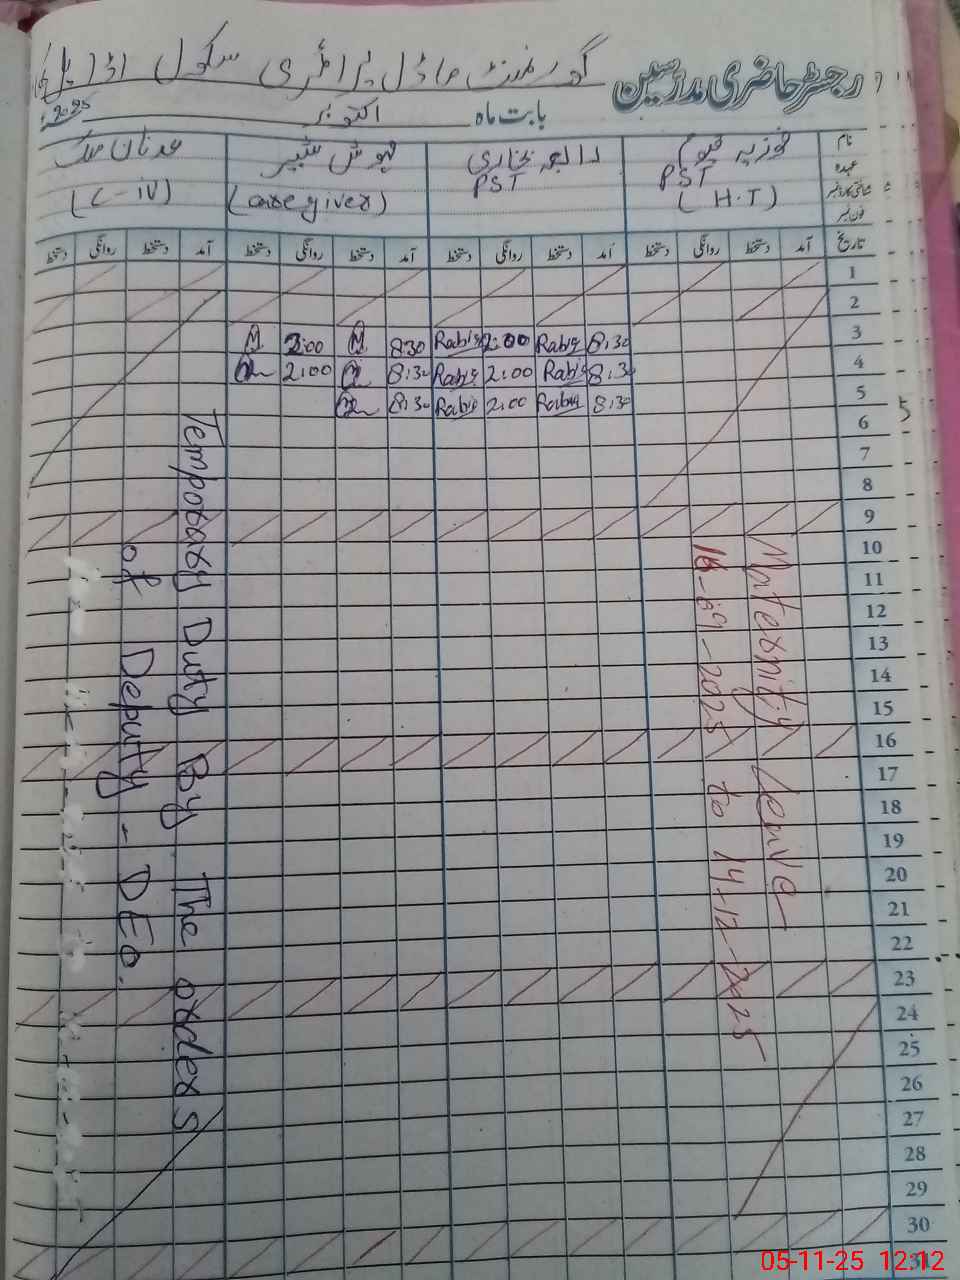 رجسٹر حاضری مدرسین گورنمنٹ ماڈل پرائمری سکول
بابت ماہ اکتوبر 2025
نام
عہدہ
فون نمبر
فوزیہ
PST
(H.T)
رابعہ بخاری
PST
(caregiver)
عدنان ملک
(C-iv)
تاریخ آمد دستخط روانگی دستخط آمد دستخط روانگی دستخط آمد دستخط روانگی دستخط آمد دستخط روانگی دستخط
1
2
3 8:30 Rabia 2:00 Rabia 8:30 2:00
4 8:30 Rabia 2:00 Rabia 8:30 2:00
5 8:30 Rabia 2:00 Rabia 8:30
5
6
7
8
9
10
11
12
13
14
15
16
17
18
19
20
21
22
23
24
25
26
27
28
29
30
31
Maternity Leave
16-09-2025 to 14-12-2025
Temporary Duty By The orders
of Deputy - DEO.
05-11-25 12:12